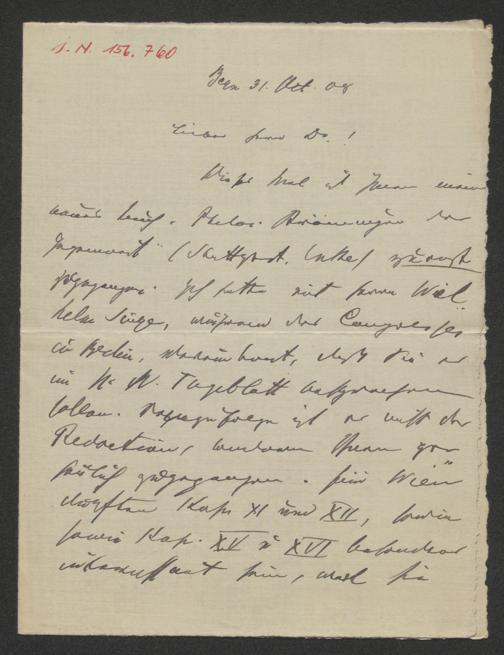 J. N. 156.760
Bern 31. Oct. 08
Lieber Herr Dr.!
Dieses Mal ist Ihnen mein
neues Buch „Philos. Strömungen der
Gegenwart" (Stuttgart, Enke) zuerst
zugegangen. Ich hatte mit Herrn Wil
helm Singer, während des Congresses
in Berlin, vereinbart, daß Sie es
im N. W. Tageblatt besprechen
sollen. Demzufolge ist es nicht der
Redaction, sondern Ihnen per
sönlich zugegangen. Für Wien
dürften Kap. XI und XII,
sowie Kap. XV u XVI besonders
interessant sein, weil sie